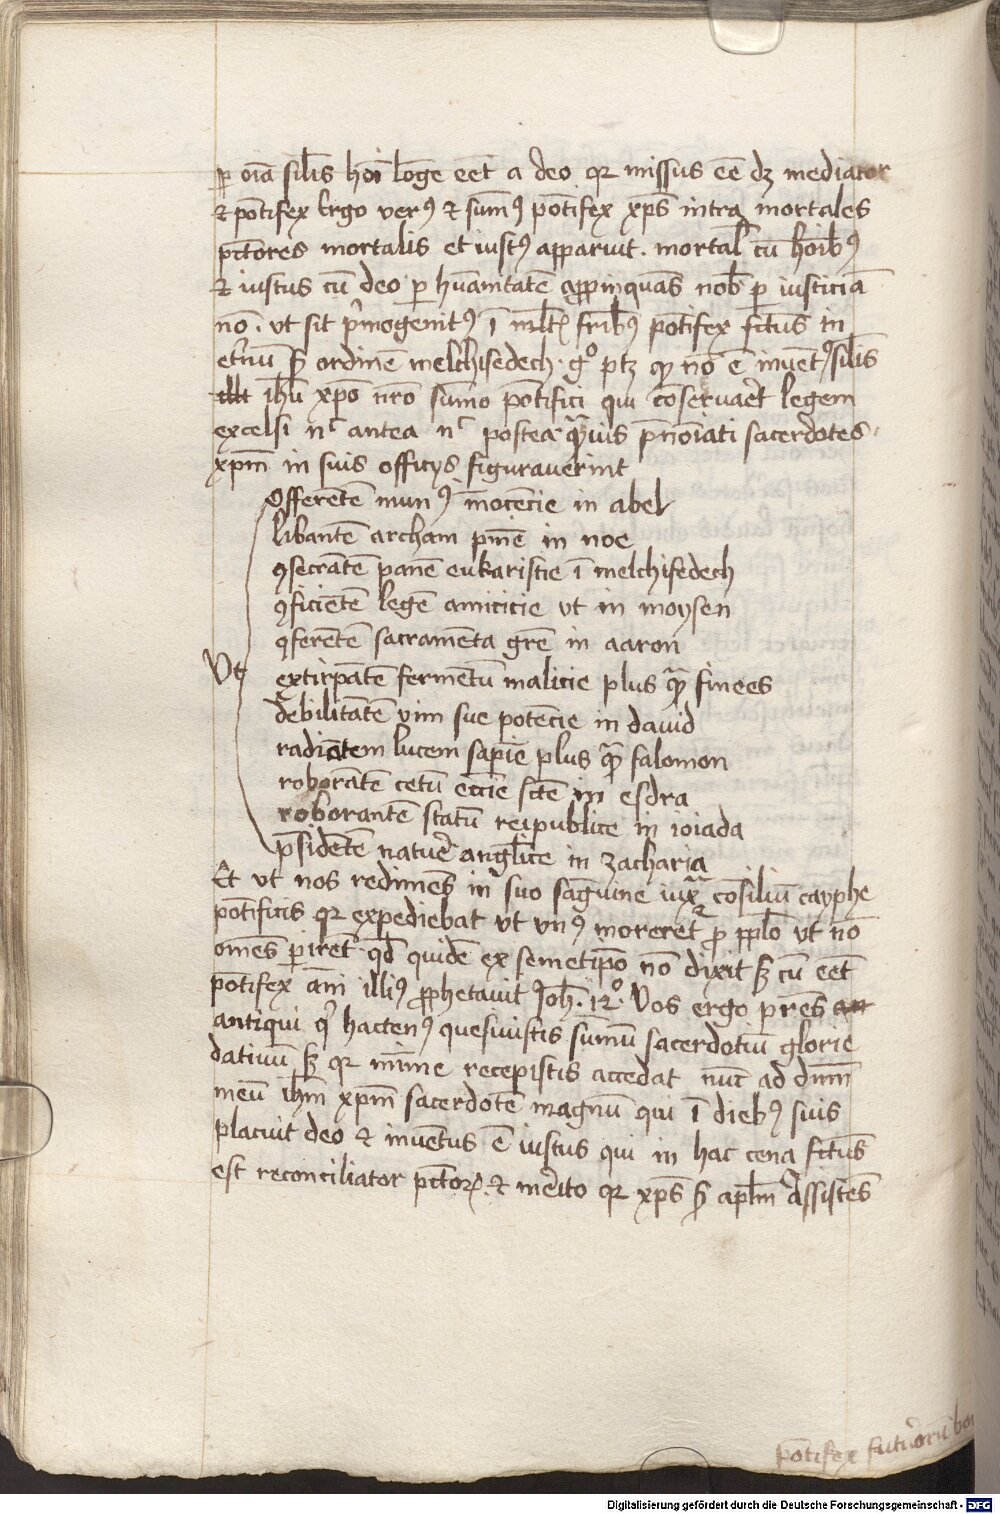 p oīa sil̄is hoī lōge eēt a deo qr missus eē dz mediator
et pōtifex Ergo verꝰ et sum̄ꝰ pōtifex xp̄s intra mortales
pc̄tores mortalis et iustꝰ apparuit . mortal̄ cū hoīb̄ꝰ
et iustus cū deo p hūanitatē appinquās nob̄ p iusticiā
nō . vt sit p̍mogenitꝰ ī ml̄t fr̄ibꝰ pōtifex fc̄tus in
et̍nū s̄ ordinē melchisedech . gͦ ptz qꝫ nō ē inuētꝰ sil̄is
ih̄u xp̄o nr̄o sum̄o pōtifici qui cōseruar̄et legem
excelsi nͨ antea nͨ postea quāuis p̄noīati sacerdotes
xp̄m in suis officijs figurauerint
Offerētē munꝰ īnocēcie in abel
libantē archam pn̄ie in noe
ꝯsecrātē panē eukaristie ī melchisedech
ꝯficiētē legē amicicie vt in moysen
ꝯferētē sacramēta gr̄e in aaron
Vt
extirpātē fermētū malicie plus qua̅ finees
debilitātē vim sue potēcie in dauid
radiātem lucem sapīe plus qua̅ salomon
roborātē cetū ecc̄ie sc̄te in esdra
roborantē statū reipublice in ioiada
p̄sidētē natur̄e angl̄ice in zacharia
Et vt nos redimēs in suo sāguine iuxͣ cōsiliū cayphe
pōtificis qr expediebat vt vnꝰ moreret᷑ pro ppl̄o vt nō
om̄es piret᷑ . qd̄ quidē ex semetip̄o nō dixit s̄ cū eēt
pōtifex an̄i illiꝰ pphetauit Joh̄ . 12ͦ . Vos ergo pr̄es an
antiqui qͥ hactenꝰ quesiuistis sum̄ū sacerdotiū glorie
datiuū s̄ qr mīme recepistis accedat nūc ad dn̄m
meū ih̄m xp̄m sacerdotē magnū qui ī diebꝰ suis
placuit deo et inuētus ē iustus qui in hac cena fc̄tus
est reconciliator pc̄toꝝ . et m̄eito qr xp̄s s̄ apl̄m assistēs
pōtifex futurorū bon